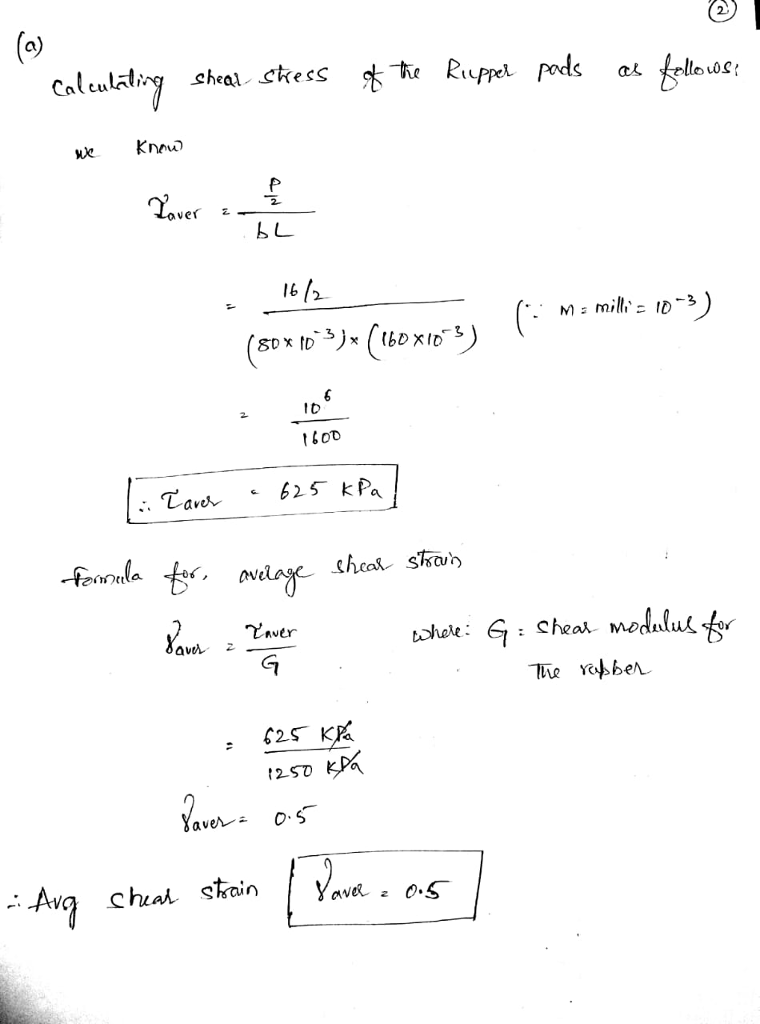 ②
(a)
Calculating shear stress of the Rupper pads as follows:
we know
τaver = P/2 / bL
= 16/2 / (80 x 10^-3) x (160 x 10^-3) (∵ m = milli = 10^-3)
= 10^6 / 1600
∴ τaver = 625 KPa
formula for, average shear strain
γaver = τaver / G where: G = shear modulus for
The rabber
= 625 KPa / 1250 KPa
γaver = 0.5
∴ Avg shear strain γaver = 0.5